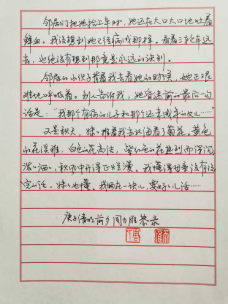 邻居们把她抬上车时，她还在大口大口地吐着
鲜血。我没想到她已经病成那样。看着三轮车远
去，也绝没有想到那竟是永远的诀别。
邻居的小伙子背着我去看她的时候，她正艰
难地呼吸着。别人告诉我，她昏迷前的最后一句
话是："我那个有病的儿子和那个还未成年的女儿……"
又是秋天，妹妹推着我去北海看了菊花。黄色
的花淡雅，白色的花高洁，紫红色的花热烈而深沉，
泼泼洒洒，秋风中正开得烂漫。我懂得母亲没有说
完的话。妹妹也懂。我俩在一块儿，要好好儿活……